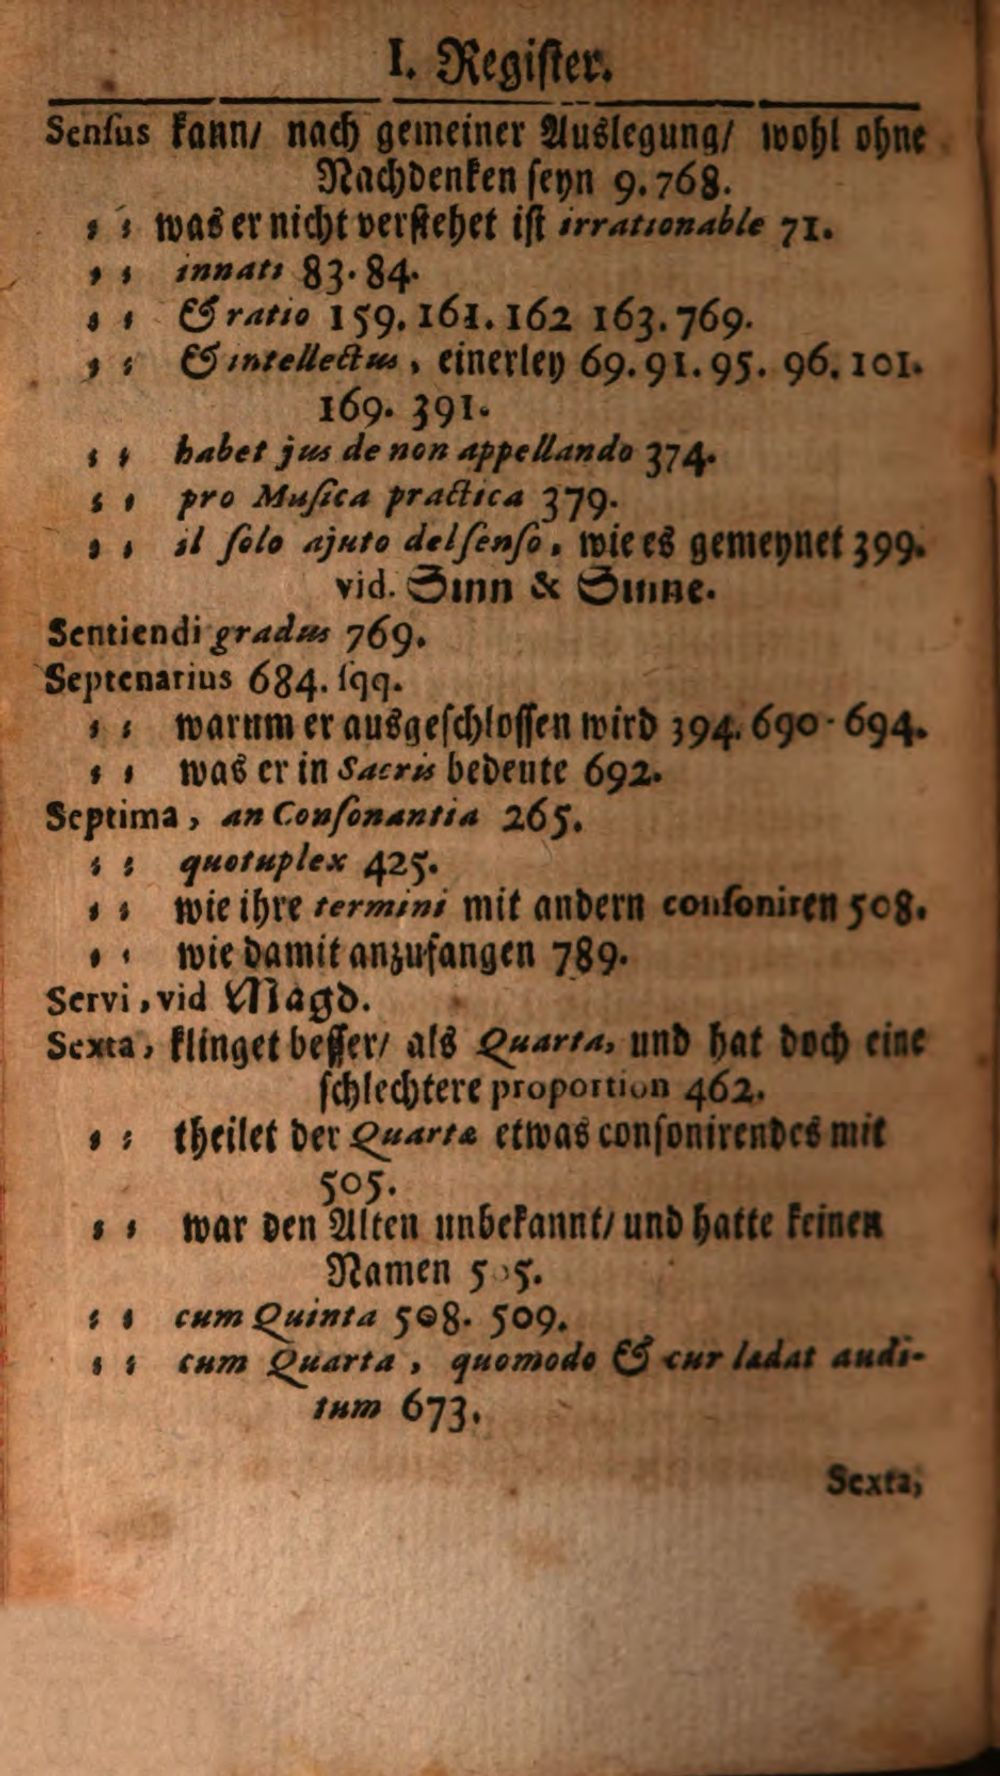 I. Regiſter.
Senſus kann/ nach gemeiner Auslegung/ wohl ohne
Nachdenken ſeyn 9. 768.
⸗ ⸗ was er nicht verſtehet iſt irrationable 71.
⸗ ⸗ innati 83. 84.
⸗ ⸗ & ratio 159. 161. 162 163. 769.
⸗ ⸗ & intellectus, einerley 69. 91. 95. 96. 101.
169. 391.
⸗ ⸗ habet jus de non appellando 374.
⸗ ⸗ pro Muſica practica 379.
⸗ ⸗ il ſolo ajuto del ſenſo, wie es gemeynet 399.
vid. Sinn & Sinne.
Sentiendi gradus 769.
Septenarius 684. ſqq.
⸗ ⸗ warum er ausgeſchloſſen wird 394. 690-694.
⸗ ⸗ was er in Sacris bedeute 692.
Septima, an Conſonantia 265.
⸗ ⸗ quotuplex 425.
⸗ ⸗ wie ihre termini mit andern conſoniren 508.
⸗ ⸗ wie damit anzufangen 789.
Servi, vid Magd.
Sexta, klinget beſſer/ als Quarta, und hat doch eine
ſchlechtere proportion 462.
⸗ ⸗ theilet der Quartæ etwas conſonirendes mit
505.
⸗ ⸗ war den Alten unbekannt/ und hatte keinen
Namen 505.
⸗ ⸗ cum Quinta 508. 509.
⸗ ⸗ cum Quarta, quomodo & cur lædat audi-
tum 673.
Sexta,